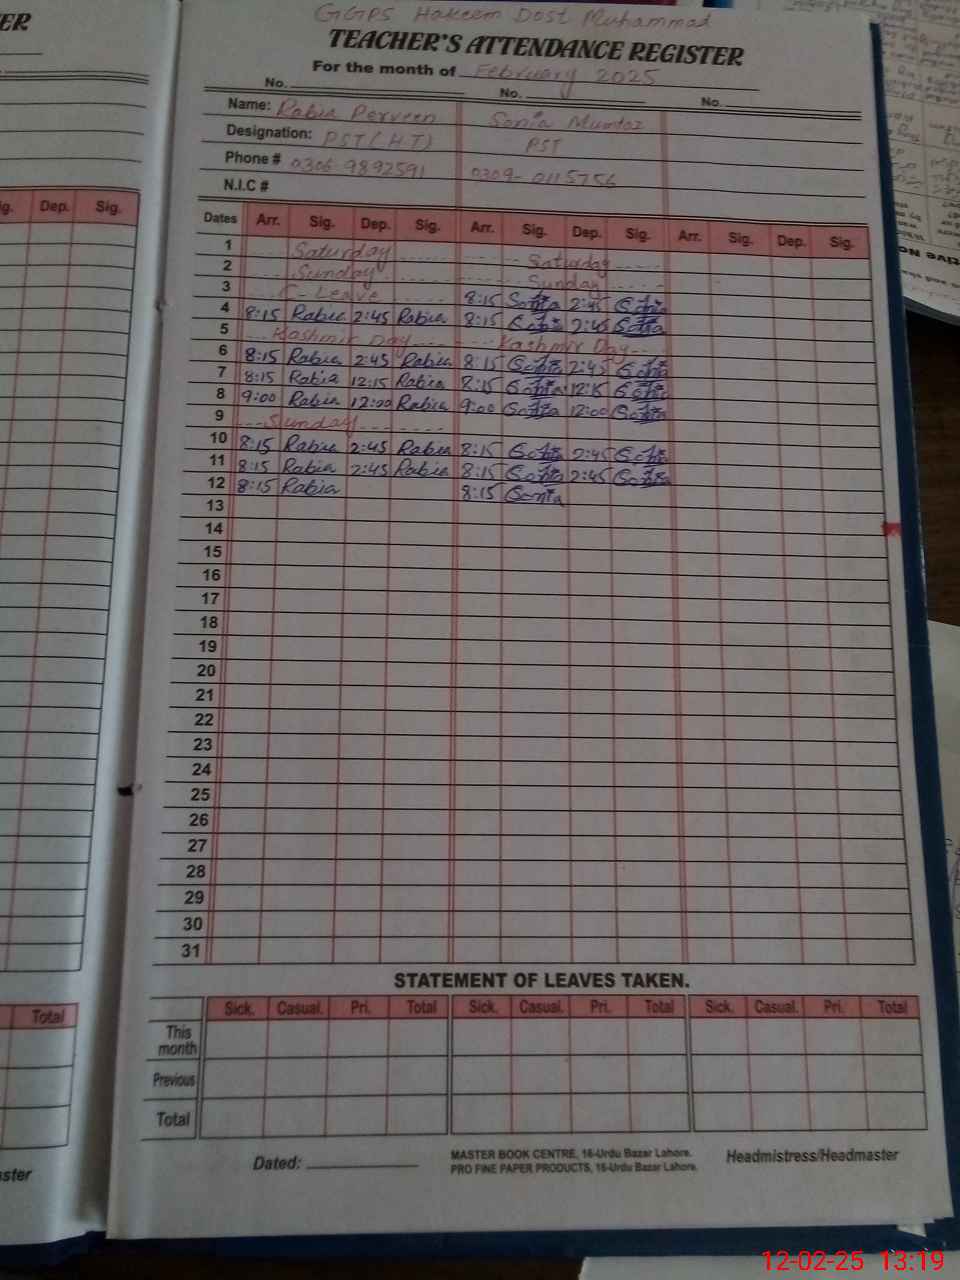 GGPS Hakeem Dost Muhammad
TEACHER'S ATTENDANCE REGISTER
For the month of February 2025
No. No. No.
Name: Rabia Perveen Sonia Mumtaz
Designation: PST (H.T) PST
Phone # 0306 9892591 0309-0115756
N.I.C #
Dates Arr. Sig. Dep. Sig. Arr. Sig. Dep. Sig. Arr. Sig. Dep. Sig.
1 Saturday Saturday
2 Sunday Sunday
3 C-Leave 8:15 Sonia 2:45 Sonia
4 8:15 Rabia 2:45 Rabia 8:15 Sonia 2:45 Sonia
5 Kashmir Day Kashmir Day
6 8:15 Rabia 2:45 Rabia 8:15 Sonia 2:45 Sonia
7 8:15 Rabia 12:15 Rabia 8:15 Sonia 12:15 Sonia
8 9:00 Rabia 12:00 Rabia 9:00 Sonia 12:00 Sonia
9 Sunday
10 8:15 Rabia 2:45 Rabia 8:15 Sonia 2:45 Sonia
11 8:15 Rabia 2:45 Rabia 8:15 Sonia 2:45 Sonia
12 8:15 Rabia 8:15 Sonia
13
14
15
16
17
18
19
20
21
22
23
24
25
26
27
28
29
30
31
STATEMENT OF LEAVES TAKEN.
Sick. Casual. Pri. Total Sick. Casual. Pri. Total Sick. Casual. Pri. Total
This month
Previous
Total
Dated:
MASTER BOOK CENTRE, 16-Urdu Bazar Lahore.
PRO FINE PAPER PRODUCTS, 16-Urdu Bazar Lahore.
Headmistress/Headmaster
ER
ig. Dep. Sig.
Total
ster
12-02-25 13:19